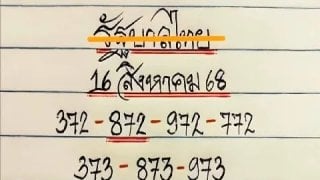 รัฐบาลไทย
16 สิงหาคม 68
372-872-972-772
373-873-973